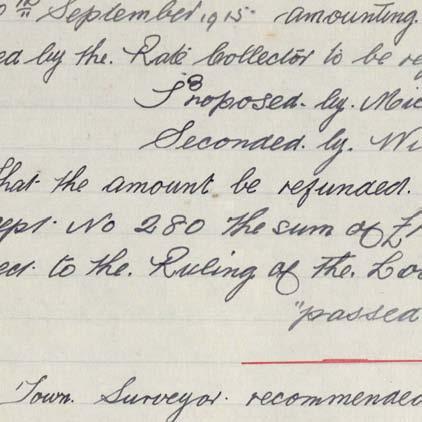 th September 1915 amounting
ed by the. Rate Collector to be re
Proposed. by. Mic
Seconded. by. Wi
that the amount be refunded.
ept. No 280 the sum of £1
ect. to the. Ruling of the. Loc
"passed
Town. Surveyor. recommended